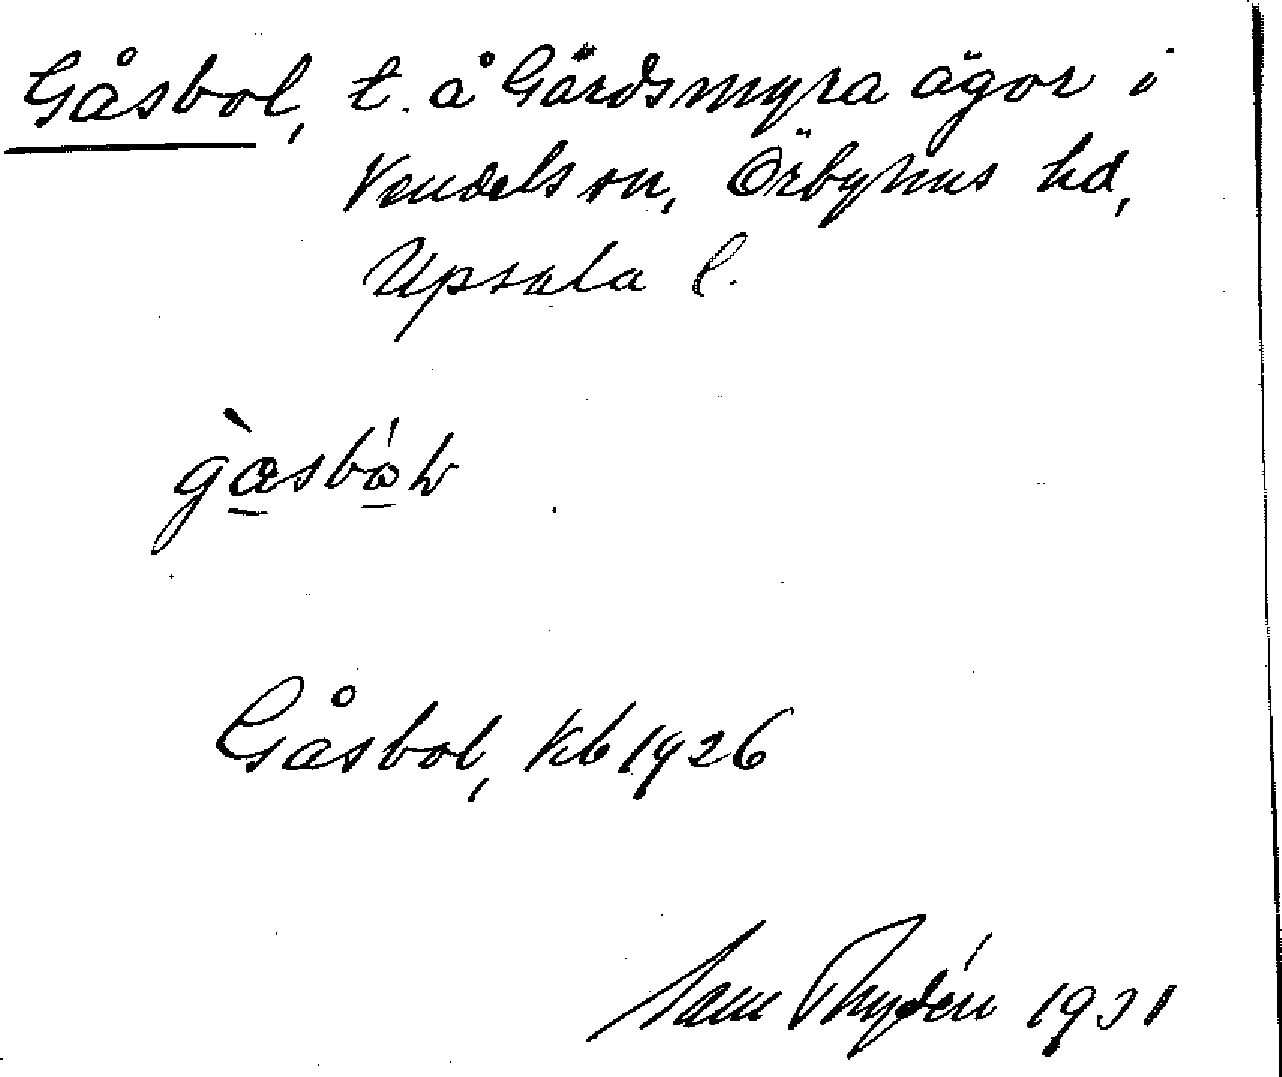 Gåsbol, t. å Gärdsmyra ägor i
Vendels sn, Örbyhus hd,
Upsala l.
Gåsbol, kb 1926
Sam Thydén 1931